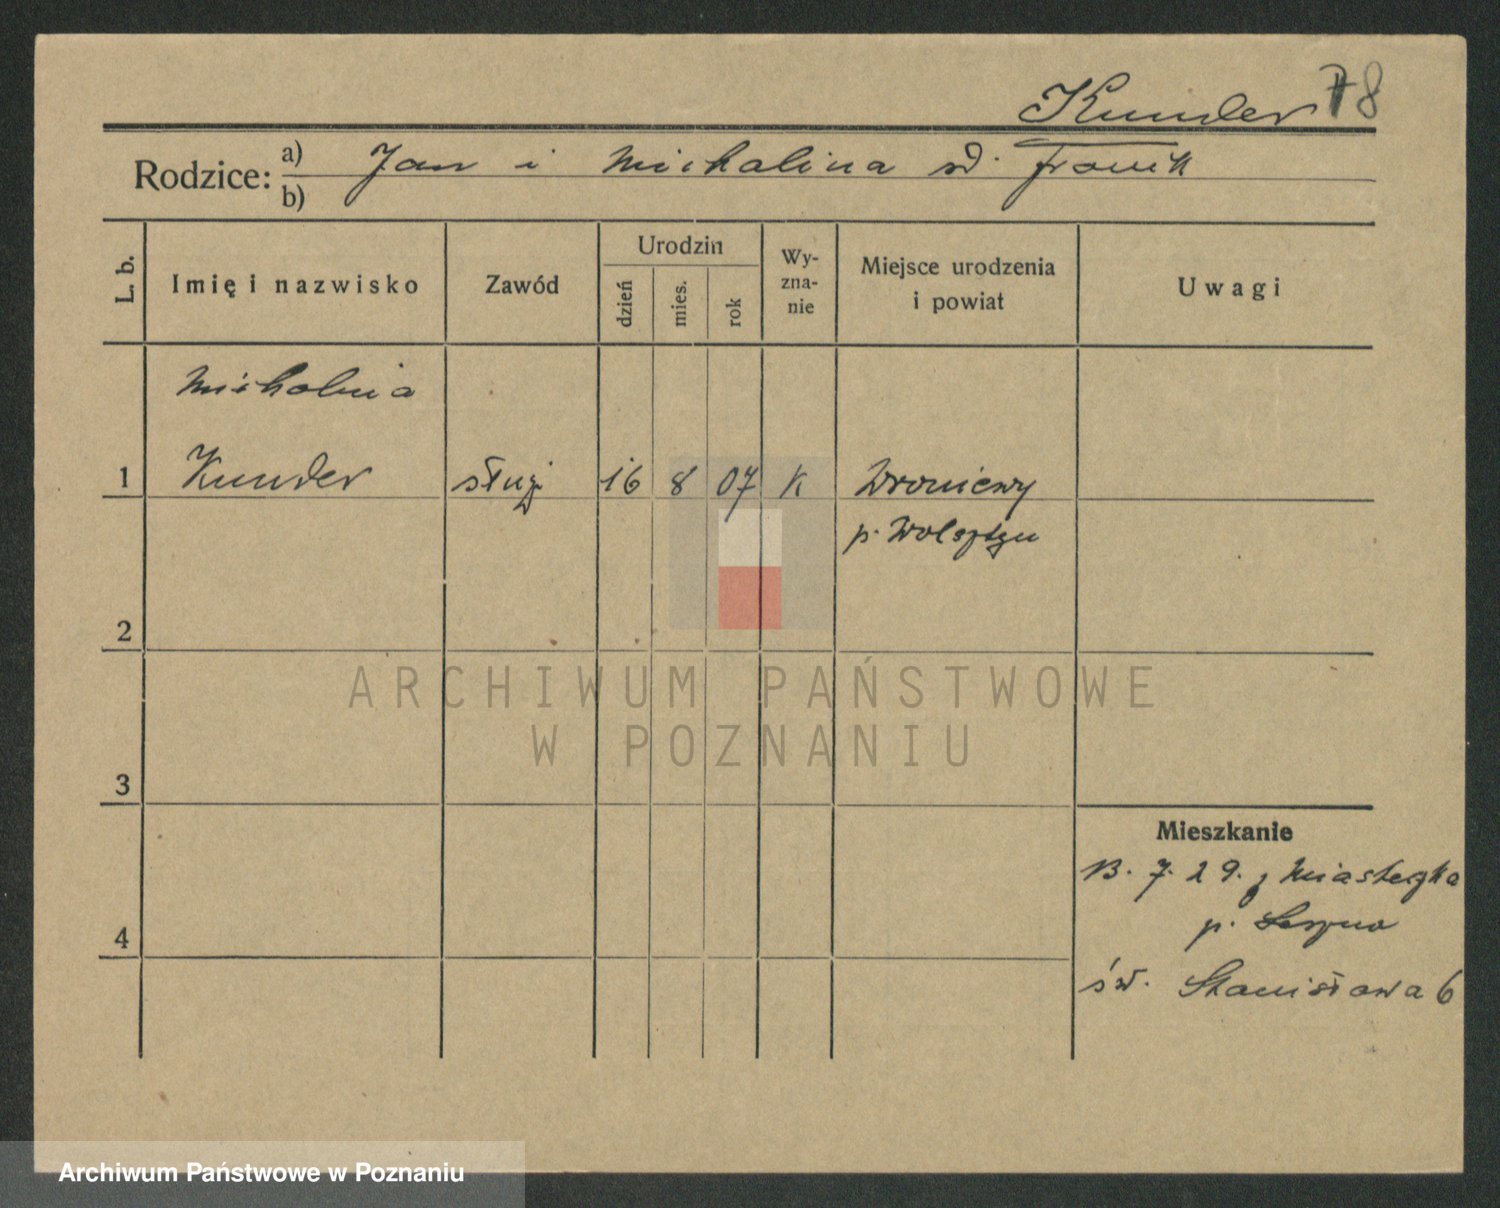 Kunder 78
Rodzice: a) Jan i Michalina d. Franik
b)
L. b.
Imię i nazwisko
Zawód
Urodzin
dzień
mies.
rok
Wy-
zna-
nie
Miejsce urodzenia
i powiat
Uwagi
Michalina
1 Kunder służ 16 8 07 k Wroniewy
p. Wolsztyn
2
ARCHIWUM PAŃSTWOWE
W POZNANIU
3
Mieszkanie
B. 7. 29. z Miasteczka
p. Leszno
4
św. Stanisława 6
Archiwum Państwowe w Poznaniu